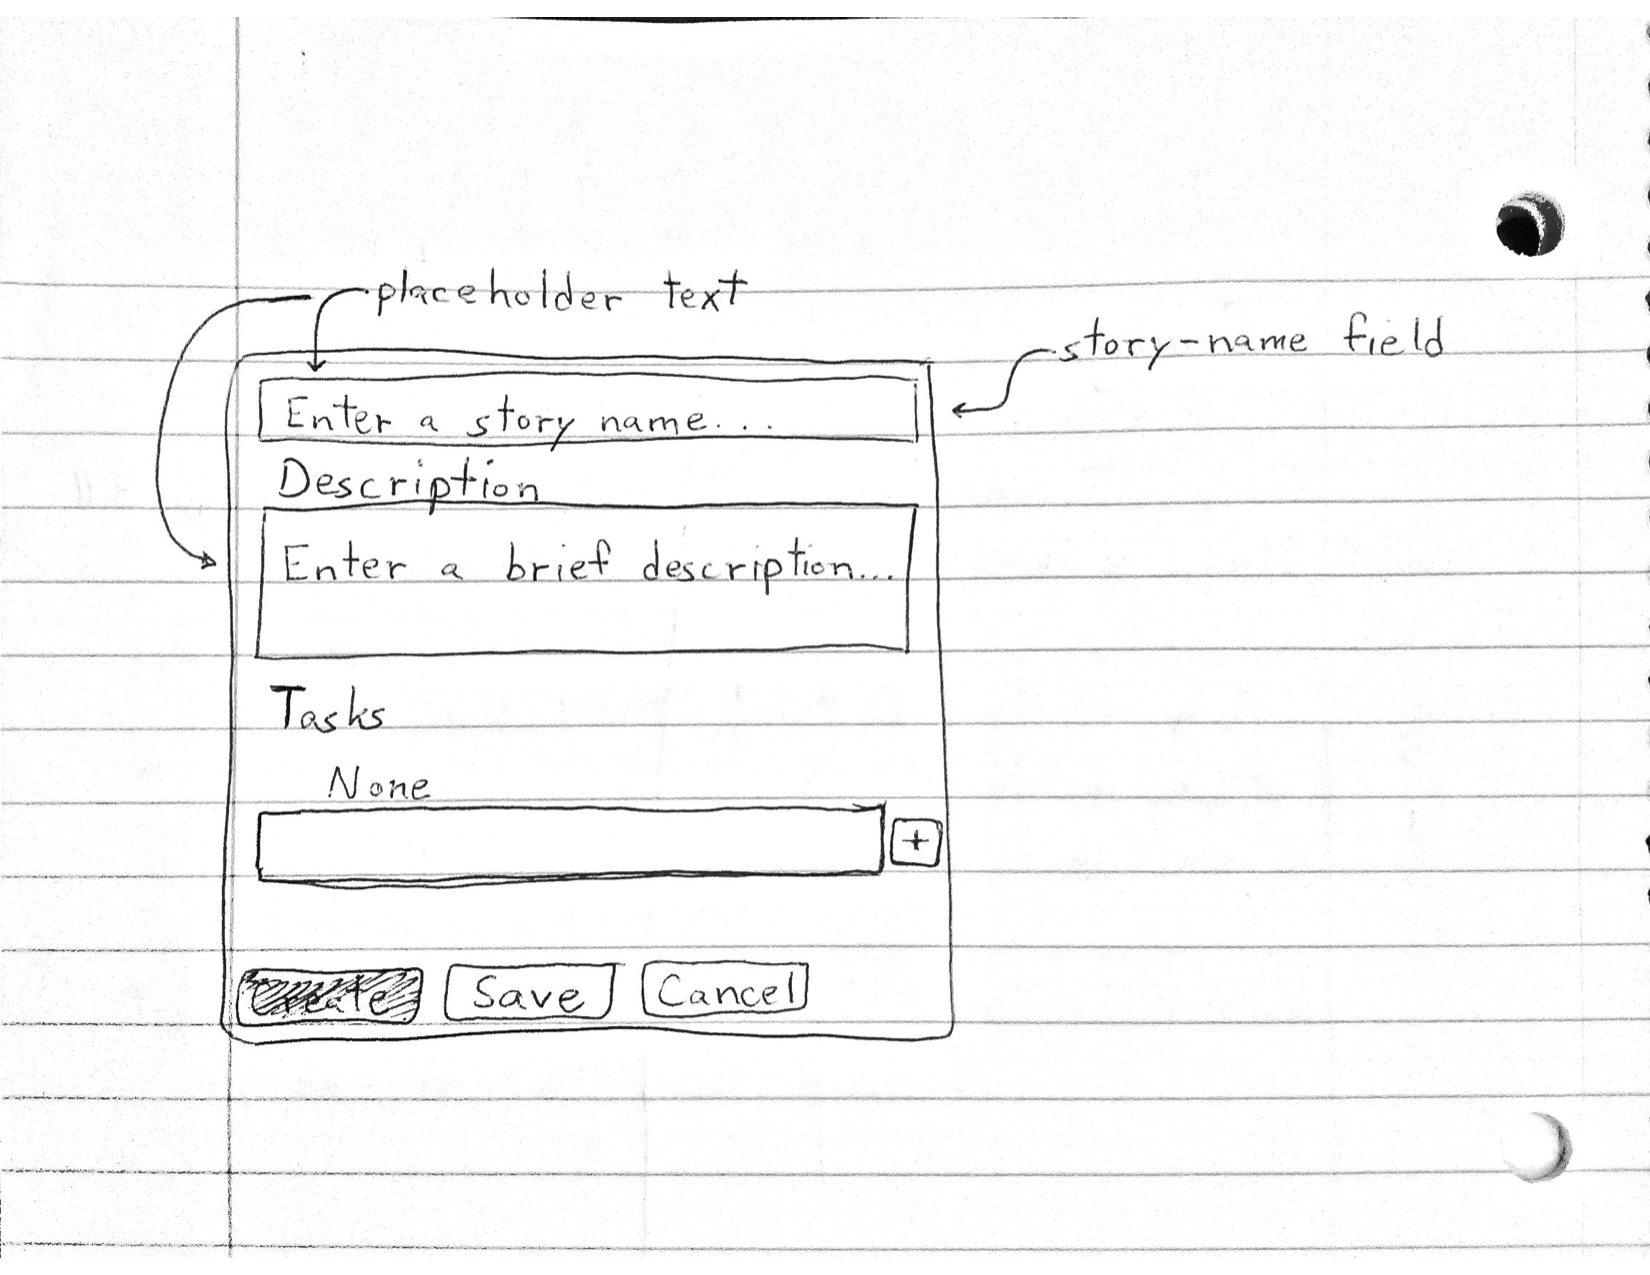 placeholder text
story-name field
Enter a story name...
Description
Enter a brief description...
Tasks
None
+
Create
Save
Cancel